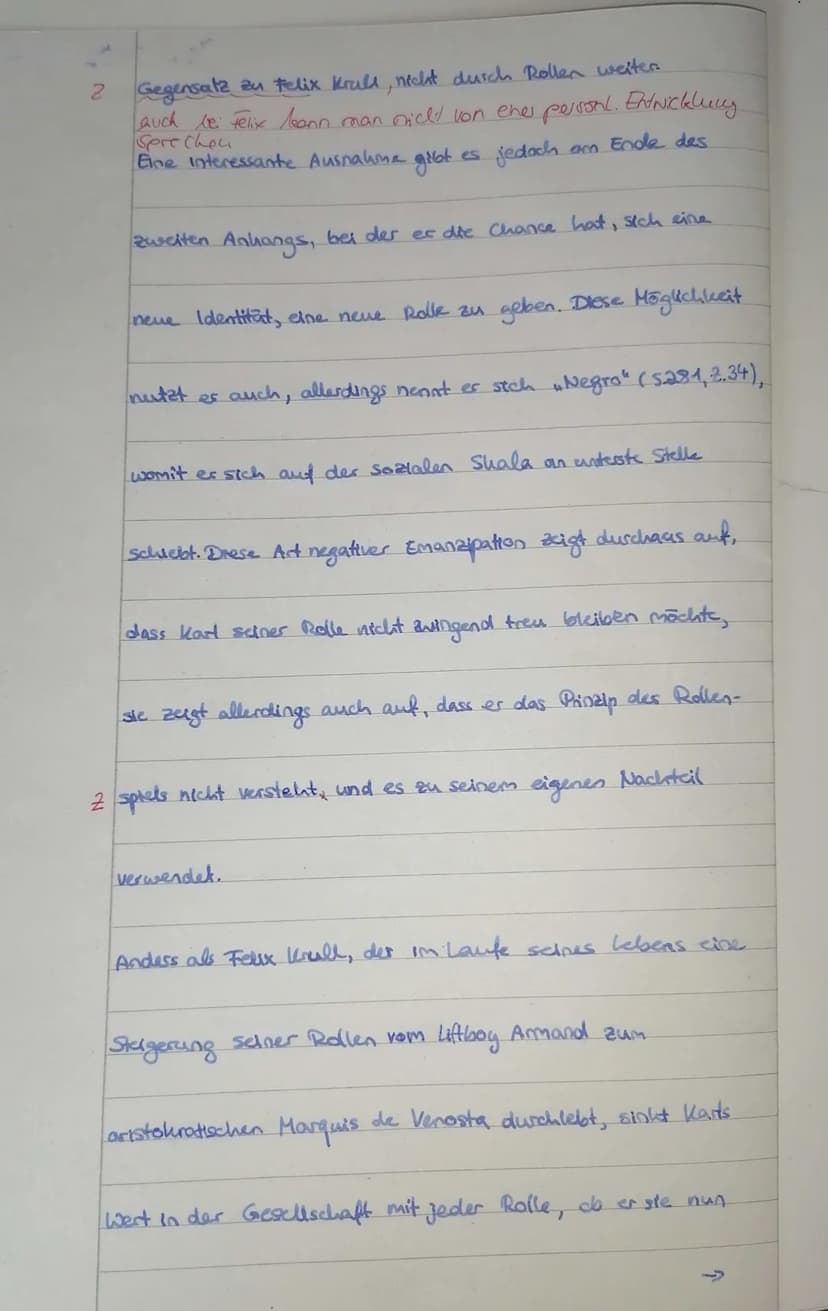 Z Gegensatz zu Felix Krull, nicht durch Rollen weiter.
auch bei Felix kann man nicht von einer persönl. Entwicklung
sprechen
Eine interessante Ausnahme gibt es jedoch am Ende des
zweiten Anhangs, bei der er die Chance hat, sich eine
neue Identität, eine neue Rolle zu geben. Diese Möglichkeit
nutzt er auch, allerdings nennt er sich „Negro“ (S.281, Z.34),
womit er sich auf der sozialen Skala an unterste Stelle
schiebt. Diese Art negativer Emanzipation zeigt durchaus auf,
dass Karl seiner Rolle nicht zwingend treu bleiben möchte,
sie zeigt allerdings auch auf, dass er das Prinzip des Rollen-
Z spiels nicht versteht, und es zu seinem eigenen Nachteil
verwendet.
Anders als Felix Krull, der im Laufe seines Lebens eine
Steigerung seiner Rollen vom Liftboy Armand zum
aristokratischen Marquis de Venosta durchlebt, sinkt Karls
Wert in der Gesellschaft mit jeder Rolle, ob er sie nun
→